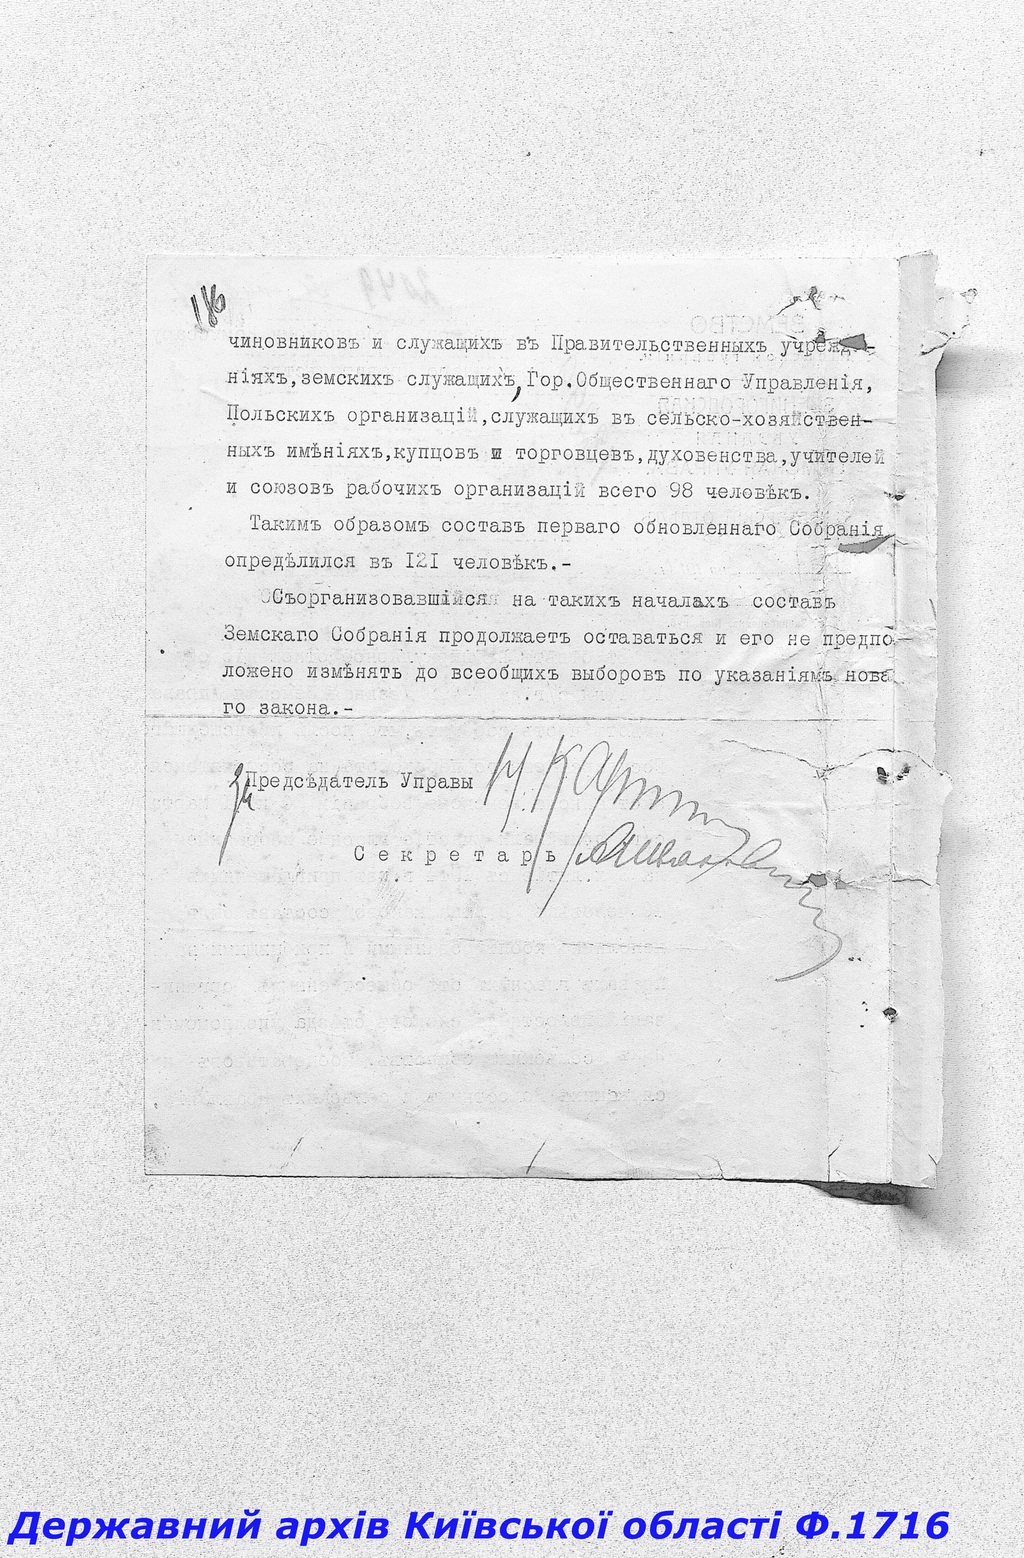 186
чиновниковъ и служащихъ въ Правительственныхъ учрежде-
ніяхъ,земскихъ служащихъ, Гор.Общественнаго Управленія,
Польскихъ организацій,служащихъ въ сельско-хозяйствен-
ныхъ имѣніяхъ,купцовъ и торговцевъ,духовенства,учителей
и союзовъ рабочихъ организацій всего 98 человѣкъ.
Такимъ образомъ составъ перваго обновленнаго Собранія
опредѣлился въ 121 человѣкъ.-
Съорганизовавшійся на такихъ началахъ составъ
Земскаго Собранія продолжаетъ оставаться и его не предпо-
ложено измѣнять до всеобщихъ выборовъ по указаніямъ нова
го закона.-
За Предсѣдатель Управы
Секретарь
Державний архів Київської області Ф.1716